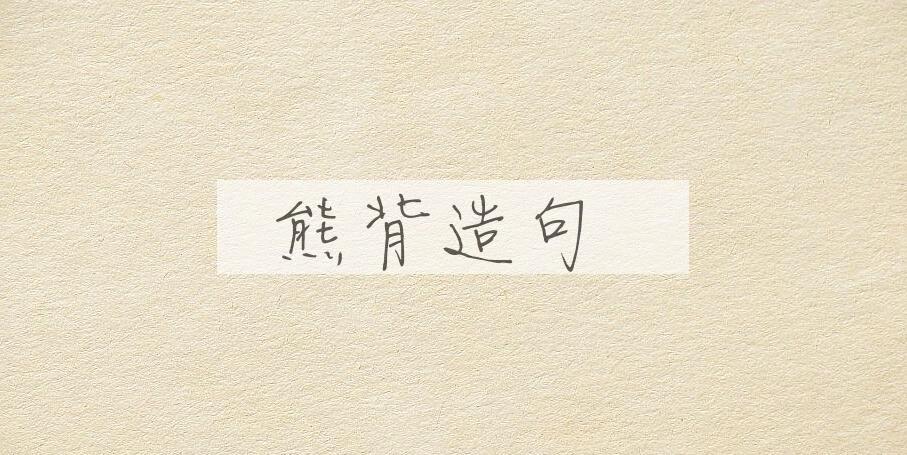 熊背造句